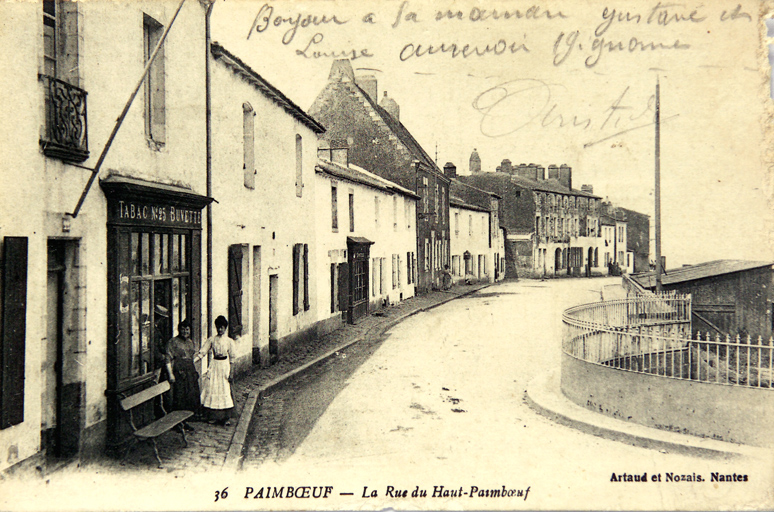 Boyour a la maman Gustave et
Louise aurevoir
TABAC Nº25 BUVETTE
36 PAIMBŒUF — La Rue du Haut-Paimbœuf
Artaud et Nozais. Nantes